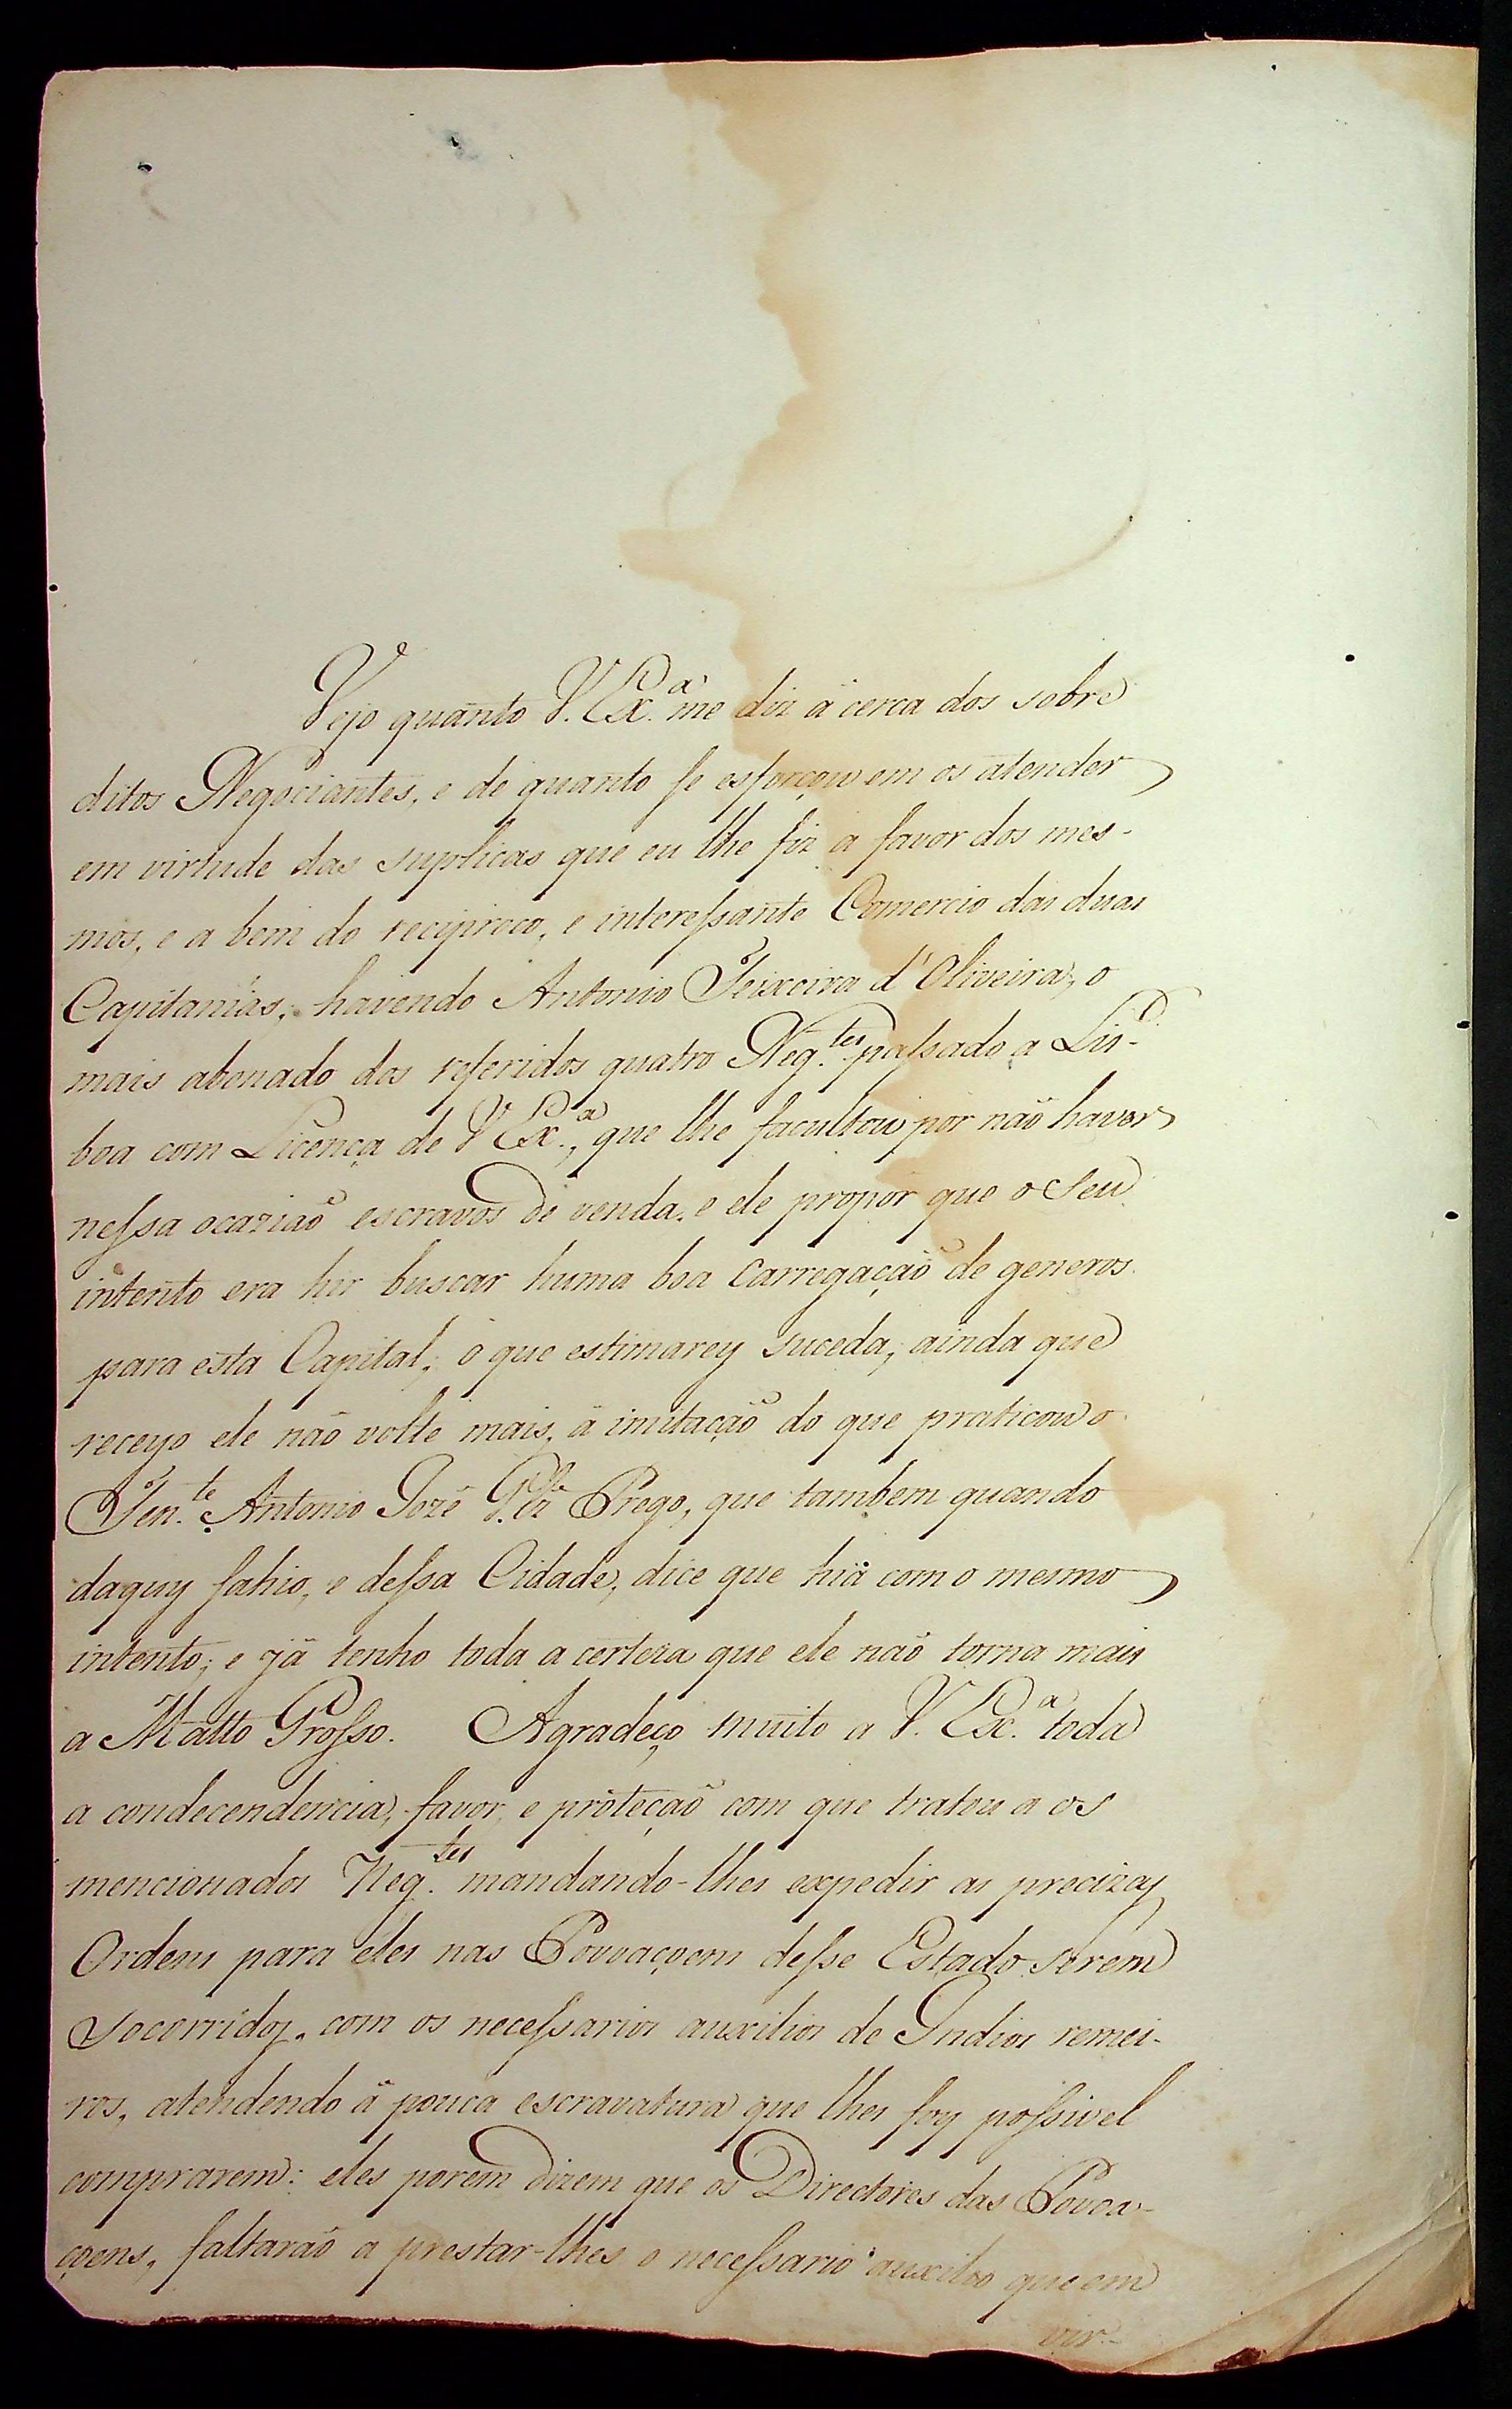 Vejo quanto V. Ex.ª me diz á cerca dos sobre
ditos Negociantes, e de quanto se esforçou em os atender
em virtude das suplicas que eu lhe fiz a favor dos mes-
mos, e a bem do reciproco, e interessante Comercio das duas
Capitanias; havendo Antonio Teixeira d'Oliveira, o
mais abonado dos referidos quatro Neg.tes passado a Lis-
boa com Licença de V Ex.ª, que lhe facultou por não haver
nessa ocazião escravos de venda, e ele propor que o seu
intento era hir buscar huma boa Carregação de generos
para esta Capital; o que estimarey suceda, ainda que
receyo ele não volte mais, á imitação do que praticou o
Ten.te Antonio Jozé Prego, que tambem quando
daquy sahio, e dessa Cidade, dice que hia com o mesmo
intento; e já tenho toda a certeza que ele não torna mais
a Matto Grosso. Agradeço muito a V. Ex.ª toda
a condecendencia, favor, e proteção com que tratou a os
mencionados Neg.tes mandando-lhes expedir as precizas
Ordens para eles nas Povoaçoens desse Estado serem
socorridos, com os necessarios auxilios de Indios remei-
ros, atendendo á pouca escravatura que lhes foy possivel
comprarem: eles porem dizem que os Directores das Povoa-
çoens, faltarão a prestar-lhes o necessario auxilio que em
vir-